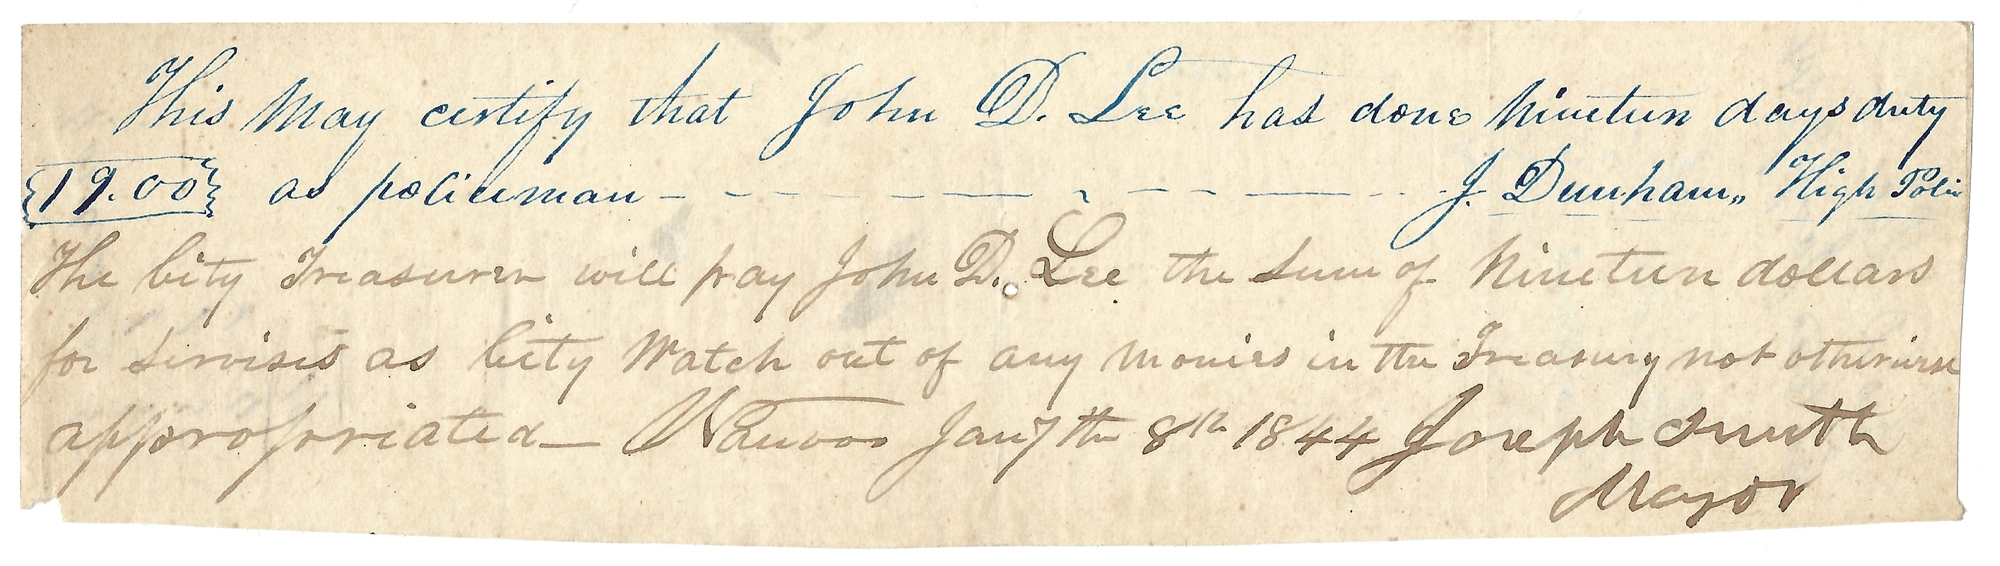 This May certify that John D. Lee has done Nineteen days duty
19.00 as policeman - - - - - - - - J. Dunham,, High Polic
The City Treasurer will pay John D. Lee the sum of Nineteen dollars
for servises as City Watch out of any monies in the Treasury not otherwise
appropriated — Nauvoo Jany the 8th 1844 Joseph Smith
Mayor